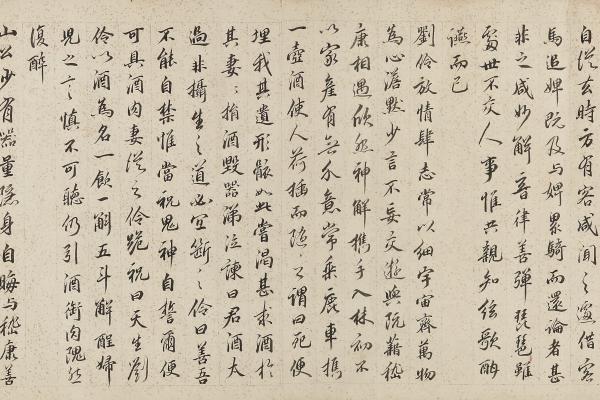 自從去時方有客咸聞之遽借客
馬追婢既及與婢累騎而還論者甚
非之咸妙解音律善彈琵琶雖
處世不交人事惟共親知絃歌酣
讌而已
劉伶放情肆志常以細宇宙齊萬物
為心澹默少言不妄交游與阮籍嵇
康相遇欣然神解攜手入林初不
以家產有無介意常乘鹿車攜
一壺酒使人荷插而隨之謂曰死便
埋我其遺形骸如此嘗渴甚求酒於
其妻妻捐酒毀器涕泣諫曰君酒太
過非攝生之道必宜斷之伶曰善吾
不能自禁惟當祝鬼神自誓爾便
可具酒肉妻從之伶跪祝曰天生劉
伶以酒為名一飲一斛五斗解酲婦
兒之言慎不可聽仍引酒銜肉隗然
復醉
山公少有器量隱身自晦與嵇康善